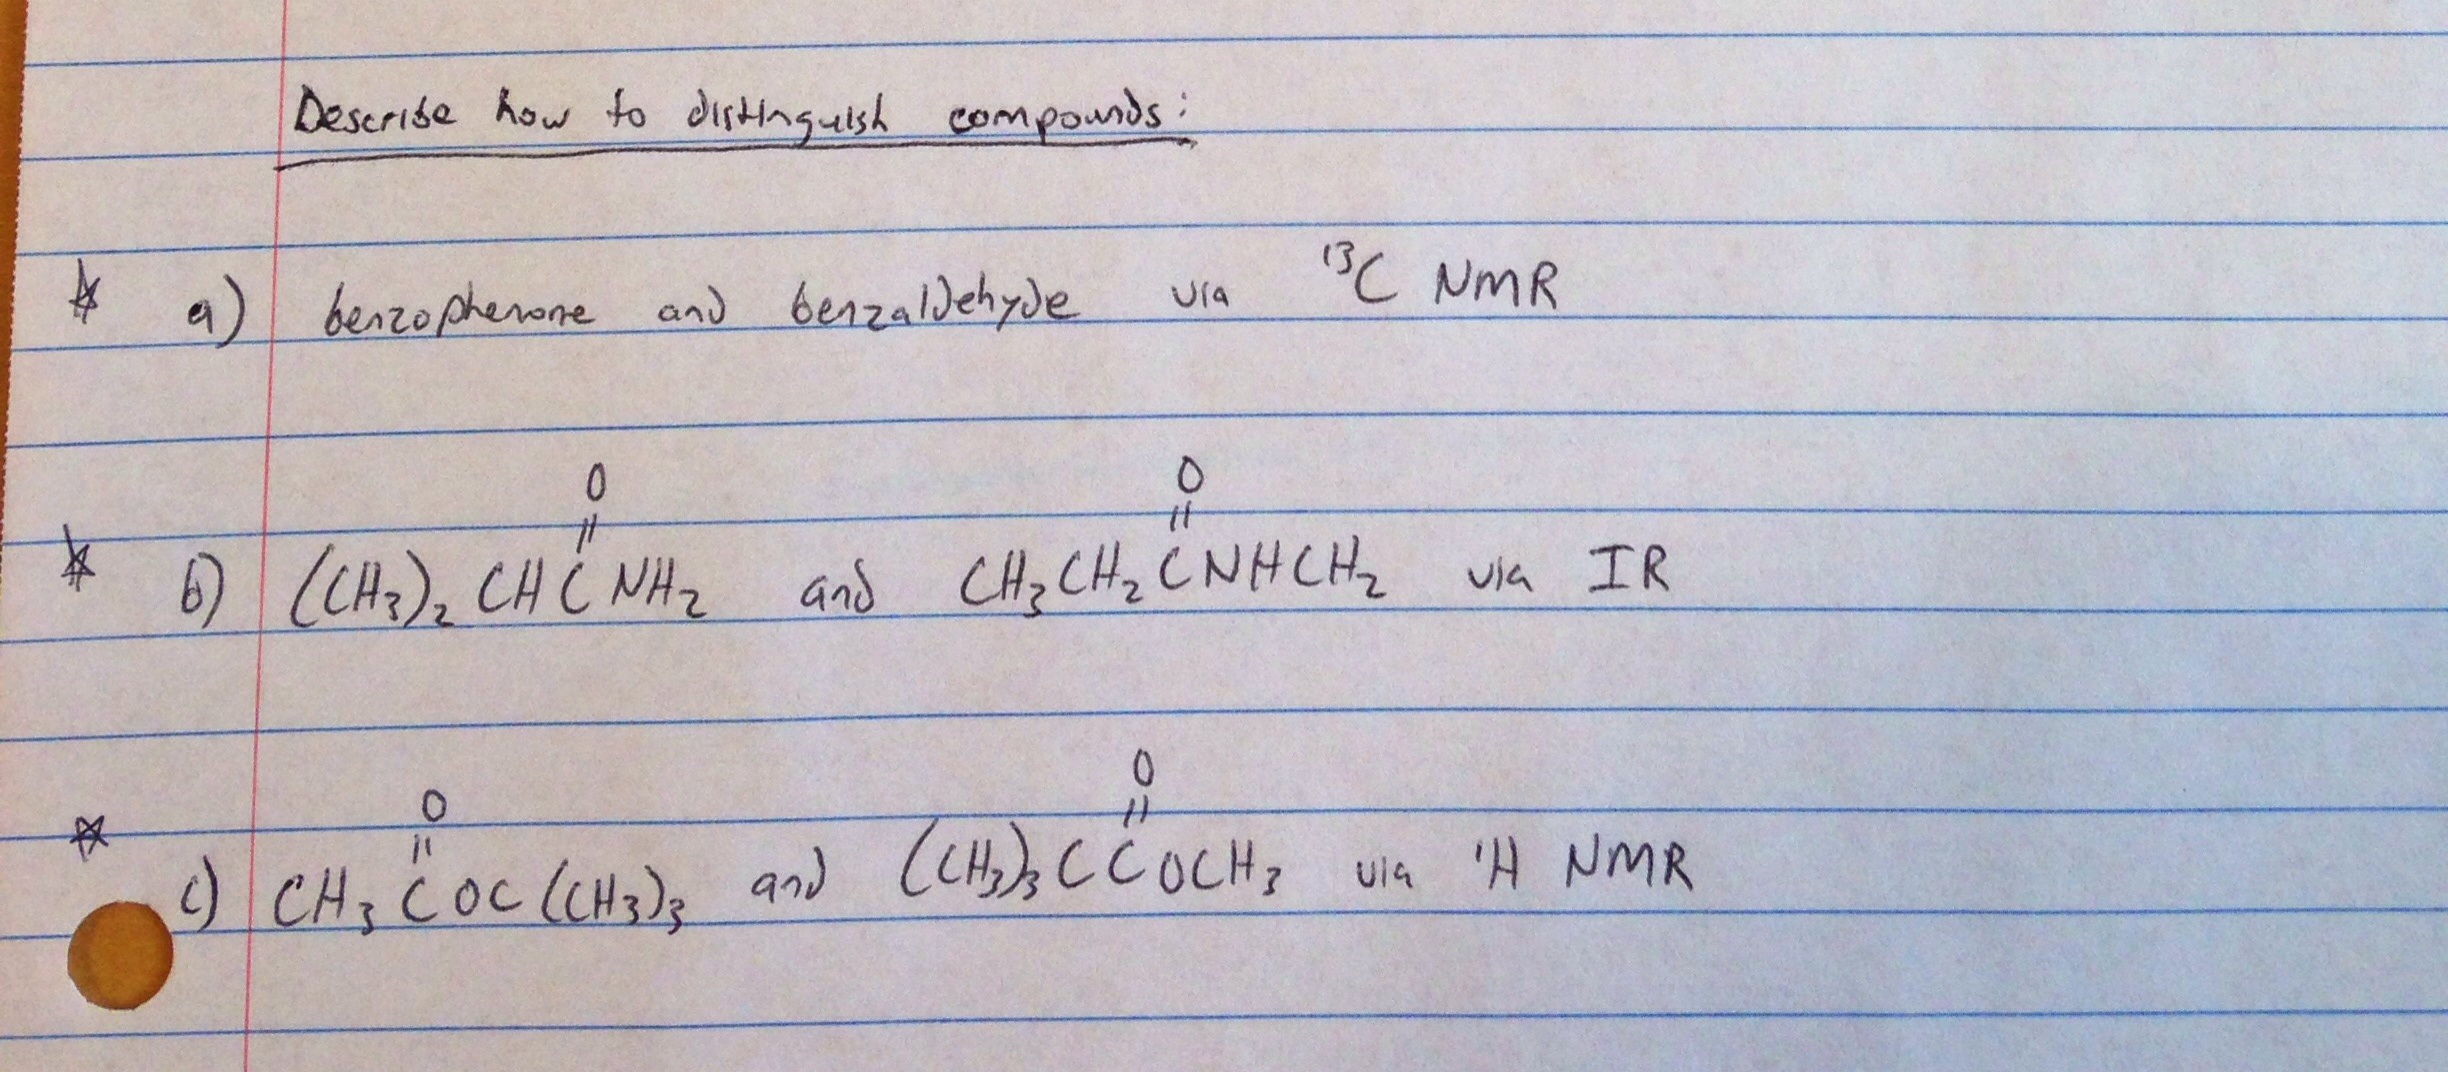 Describe how to distinguish compounds:
* a) benzophenone and benzaldehyde via ¹³C NMR
O O
|| ||
* b) (CH₃)₂CHCNH₂ and CH₃CH₂CNHCH₂ via IR
O O
|| ||
* c) CH₃COC(CH₃)₃ and (CH₃)₃CCOCH₃ via ¹H NMR